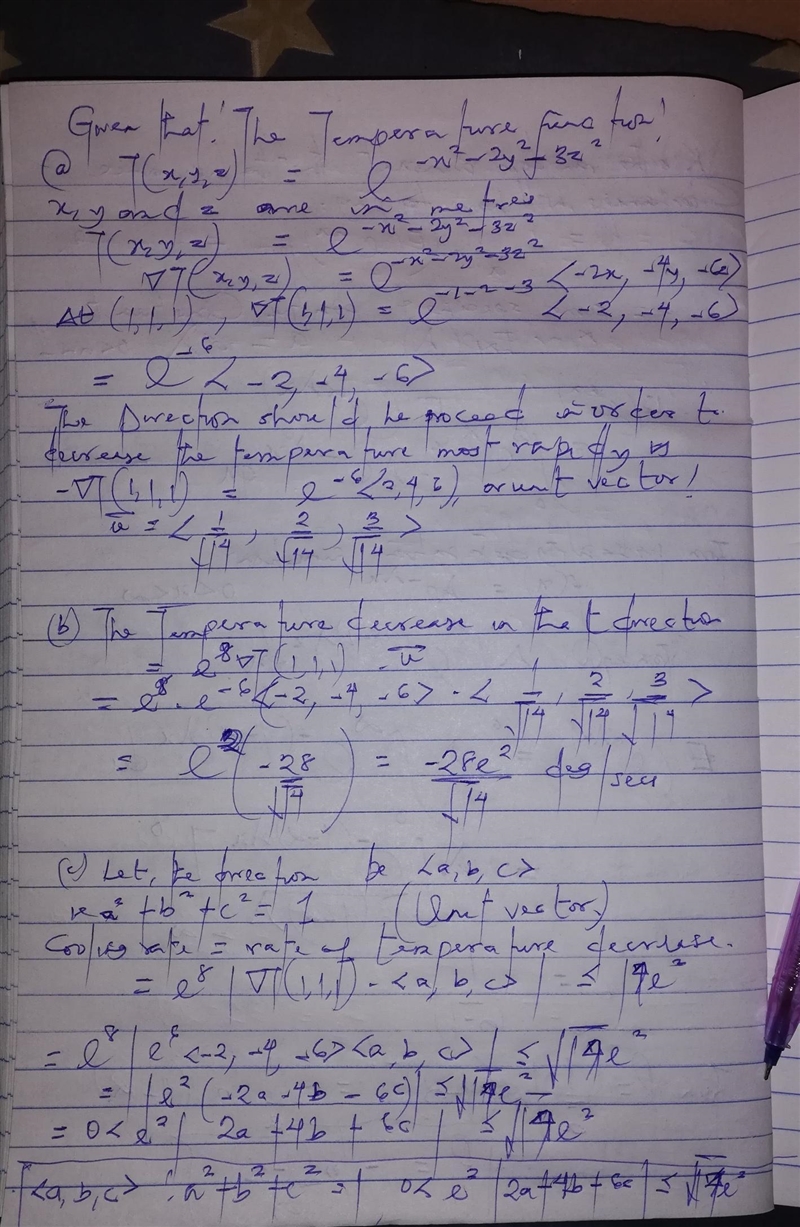 Given that! The Temperature function!
(a) T(x,y,z) = e^{-x²-2y²-3z²}
x, y and z are in metres
T(x,y,z) = e^{-x²-2y²-3z²}
∇T(x,y,z) = e^{-x²-2y²-3z²} <-2x, -4y, -6z>
At (1,1,1), ∇T(1,1,1) = e^{-1-2-3} <-2, -4, -6>
= e^{-6} <-2, -4, -6>
The Direction should be proceed in order to
decrease the temperature most rapidly is
-∇T(1,1,1) = e^{-6}<2,4,6), or unit vector!
u = <1/√14, 2/√14, 3/√14>
(b) The Temperature decrease in the t direction
= e^8 ∇T(1,1,1) · u
= e^8 · e^{-6} <-2, -4, -6> · <1/√14, 2/√14, 3/√14>
= e^2 (-28/√14) = -28e²/√14 deg/sec
(c) Let, the direction be <a, b, c>
a² + b² + c² = 1 (Unit vector)
Cooling rate = rate of temperature decrease.
= e^8 |∇T(1,1,1) - <a, b, c>| = ≤ √14e²
= e^8 | e^6 <-2, -4, -6> <a, b, c> | ≤ √14 e²
= | e² (-2a -4b - 6c)| ≤ √14e²
= 0 < e² | 2a + 4b + 6c | ≤ √14e²
<a, b, c> : a² + b² + c² = 1 0 < e² |2a+4b+6c| ≤ √14e²